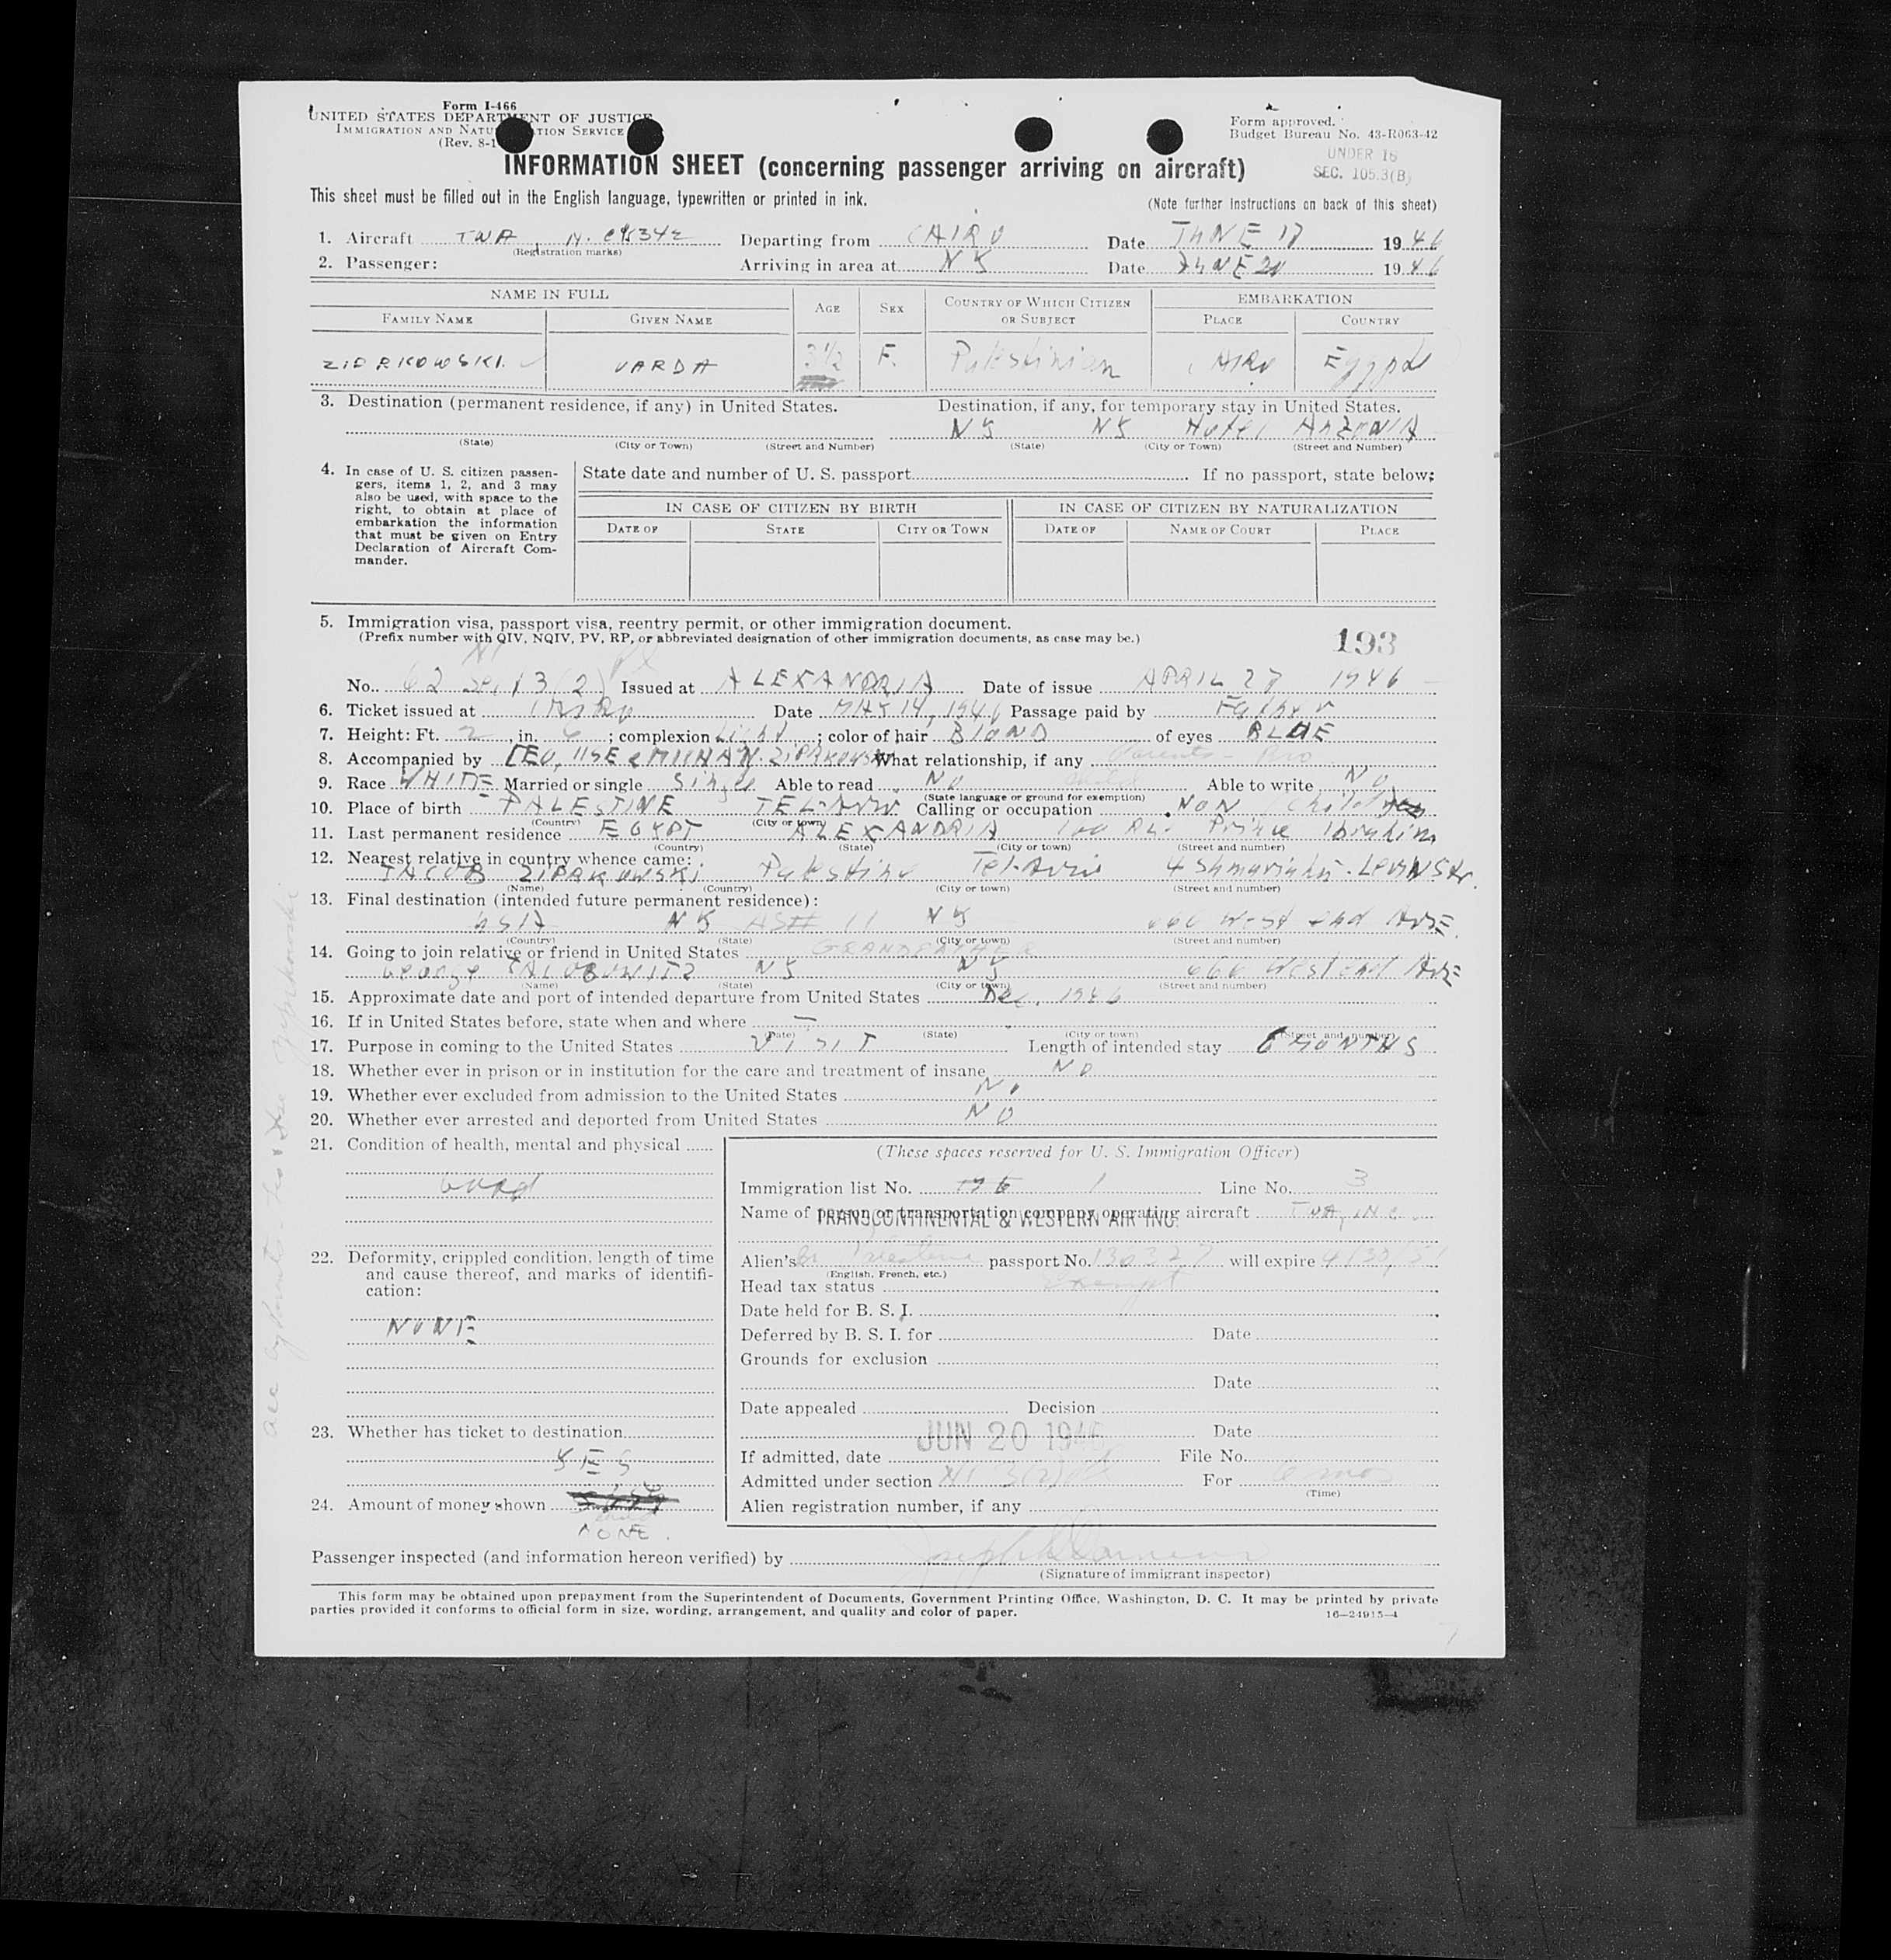 Form I-466
UNITED STATES DEPARTMENT OF JUSTICE
IMMIGRATION AND NATU TION SERVICE
(Rev. 8-1
Form approved.
Budget Bureau No. 43-R063-42
UNDER 16
SEC. 105.3(B)
INFORMATION SHEET (concerning passenger arriving on aircraft)
This sheet must be filled out in the English language, typewritten or printed in ink. (Note further instructions on back of this sheet)
1. Aircraft TWA Departing from CAIRO Date JUNE 17 1946
(Registration marks)
2. Passenger: Arriving in area at NY Date JUNE 20 1946
NAME IN FULL AGE SEX COUNTRY OF WHICH CITIZEN OR SUBJECT EMBARKATION
FAMILY NAME GIVEN NAME PLACE COUNTRY
ZIPRKOWSKI VARDA 3 1/2 F. Palestinian CAIRO Egypt
3. Destination (permanent residence, if any) in United States. Destination, if any, for temporary stay in United States.
NY NY Hotel
(State) (City or Town) (Street and Number) (State) (City or Town) (Street and Number)
4. In case of U. S. citizen passengers, items 1, 2, and 3 may also be used, with space to the right, to obtain at place of embarkation the information that must be given on Entry Declaration of Aircraft Commander.
State date and number of U. S. passport If no passport, state below:
IN CASE OF CITIZEN BY BIRTH IN CASE OF CITIZEN BY NATURALIZATION
DATE OF STATE CITY OR TOWN DATE OF NAME OF COURT PLACE
5. Immigration visa, passport visa, reentry permit, or other immigration document.
(Prefix number with QIV, NQIV, PV, RP, or abbreviated designation of other immigration documents, as case may be.)
193
No. 62 3(2) Issued at ALEXANDRIA Date of issue APRIL 27 1946
6. Ticket issued at Cairo Date MAY 14, 1946 Passage paid by Father
7. Height: Ft. 2, in. 6; complexion Light; color of hair BLOND of eyes BLUE
8. Accompanied by LEO, ILSE & ZIPRKOWSKI What relationship, if any Parents - Bro
9. Race WHITE Married or single Single Able to read NO Able to write NO
(State language or ground for exemption)
10. Place of birth PALESTINE TEL-AVIV Calling or occupation NON Child
(Country) (City or town)
11. Last permanent residence EGYPT ALEXANDRIA 100 Rue Prince Ibrahim
(Country) (State) (City or town) (Street and number)
12. Nearest relative in country whence came:
JACOB ZIPRKOWSKI Palestine Tel-Aviv 4 LEVIN Str.
(Name) (Country) (City or town) (Street and number)
13. Final destination (intended future permanent residence):
USA NY NY 666 West End AVE.
(Country) (State) (City or town) (Street and number)
14. Going to join relative or friend in United States GRANDFATHER
George JACOBOWITZ NY NY 666 West End AVE
(Name) (State) (City or town) (Street and number)
15. Approximate date and port of intended departure from United States Dec. 1946
16. If in United States before, state when and where —
(Date) (State) (City or town) (Street and number)
17. Purpose in coming to the United States VISIT Length of intended stay 6 MONTHS
18. Whether ever in prison or in institution for the care and treatment of insane NO
19. Whether ever excluded from admission to the United States NO
20. Whether ever arrested and deported from United States NO
21. Condition of health, mental and physical
Good
22. Deformity, crippled condition, length of time and cause thereof, and marks of identification:
NONE
23. Whether has ticket to destination
YES
24. Amount of money shown
NONE.
(These spaces reserved for U. S. Immigration Officer)
Immigration list No. 1 Line No. 3
Name of person or transportation company operating aircraft TWA, INC.
TRANSCONTINENTAL & WESTERN AIR INC.
Alien's Palestine passport No. 130327 will expire 4/30/51
(English, French, etc.)
Head tax status Exempt
Date held for B. S. I.
Deferred by B. S. I. for Date
Grounds for exclusion
Date
Date appealed Decision
Date
JUN 20 1946
If admitted, date File No.
Admitted under section 3(2) For 6 mos
(Time)
Alien registration number, if any
Passenger inspected (and information hereon verified) by
(Signature of immigrant inspector)
This form may be obtained upon prepayment from the Superintendent of Documents, Government Printing Office, Washington, D. C. It may be printed by private
parties provided it conforms to official form in size, wording, arrangement, and quality and color of paper. 16—24915-4